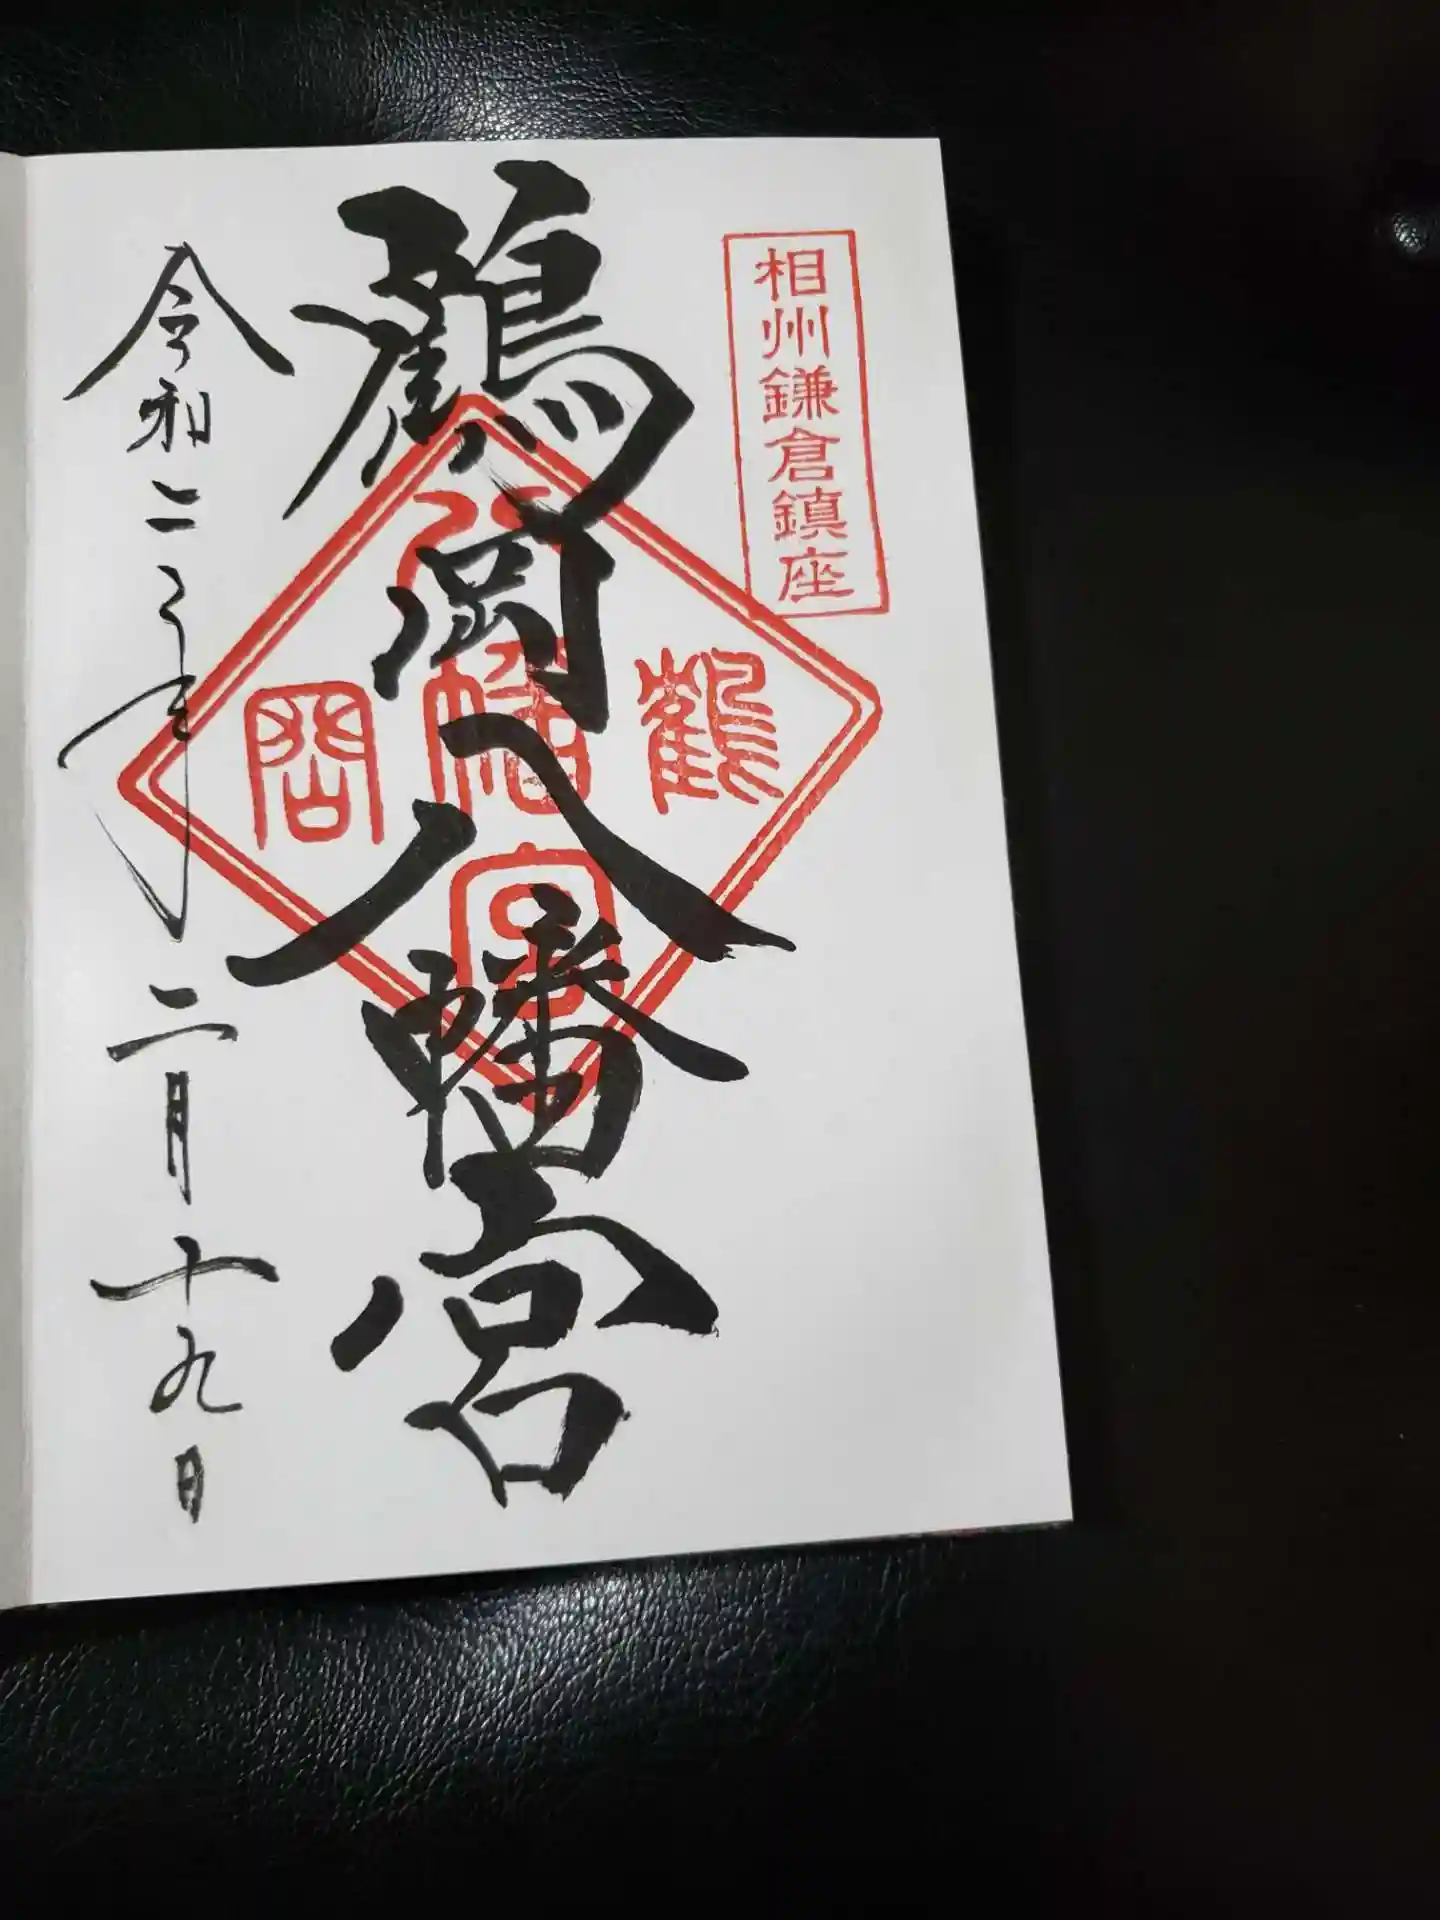 相州鎌倉鎮座
鶴岡八幡宮
鶴
八幡宮
岡
令和二年二月十九日